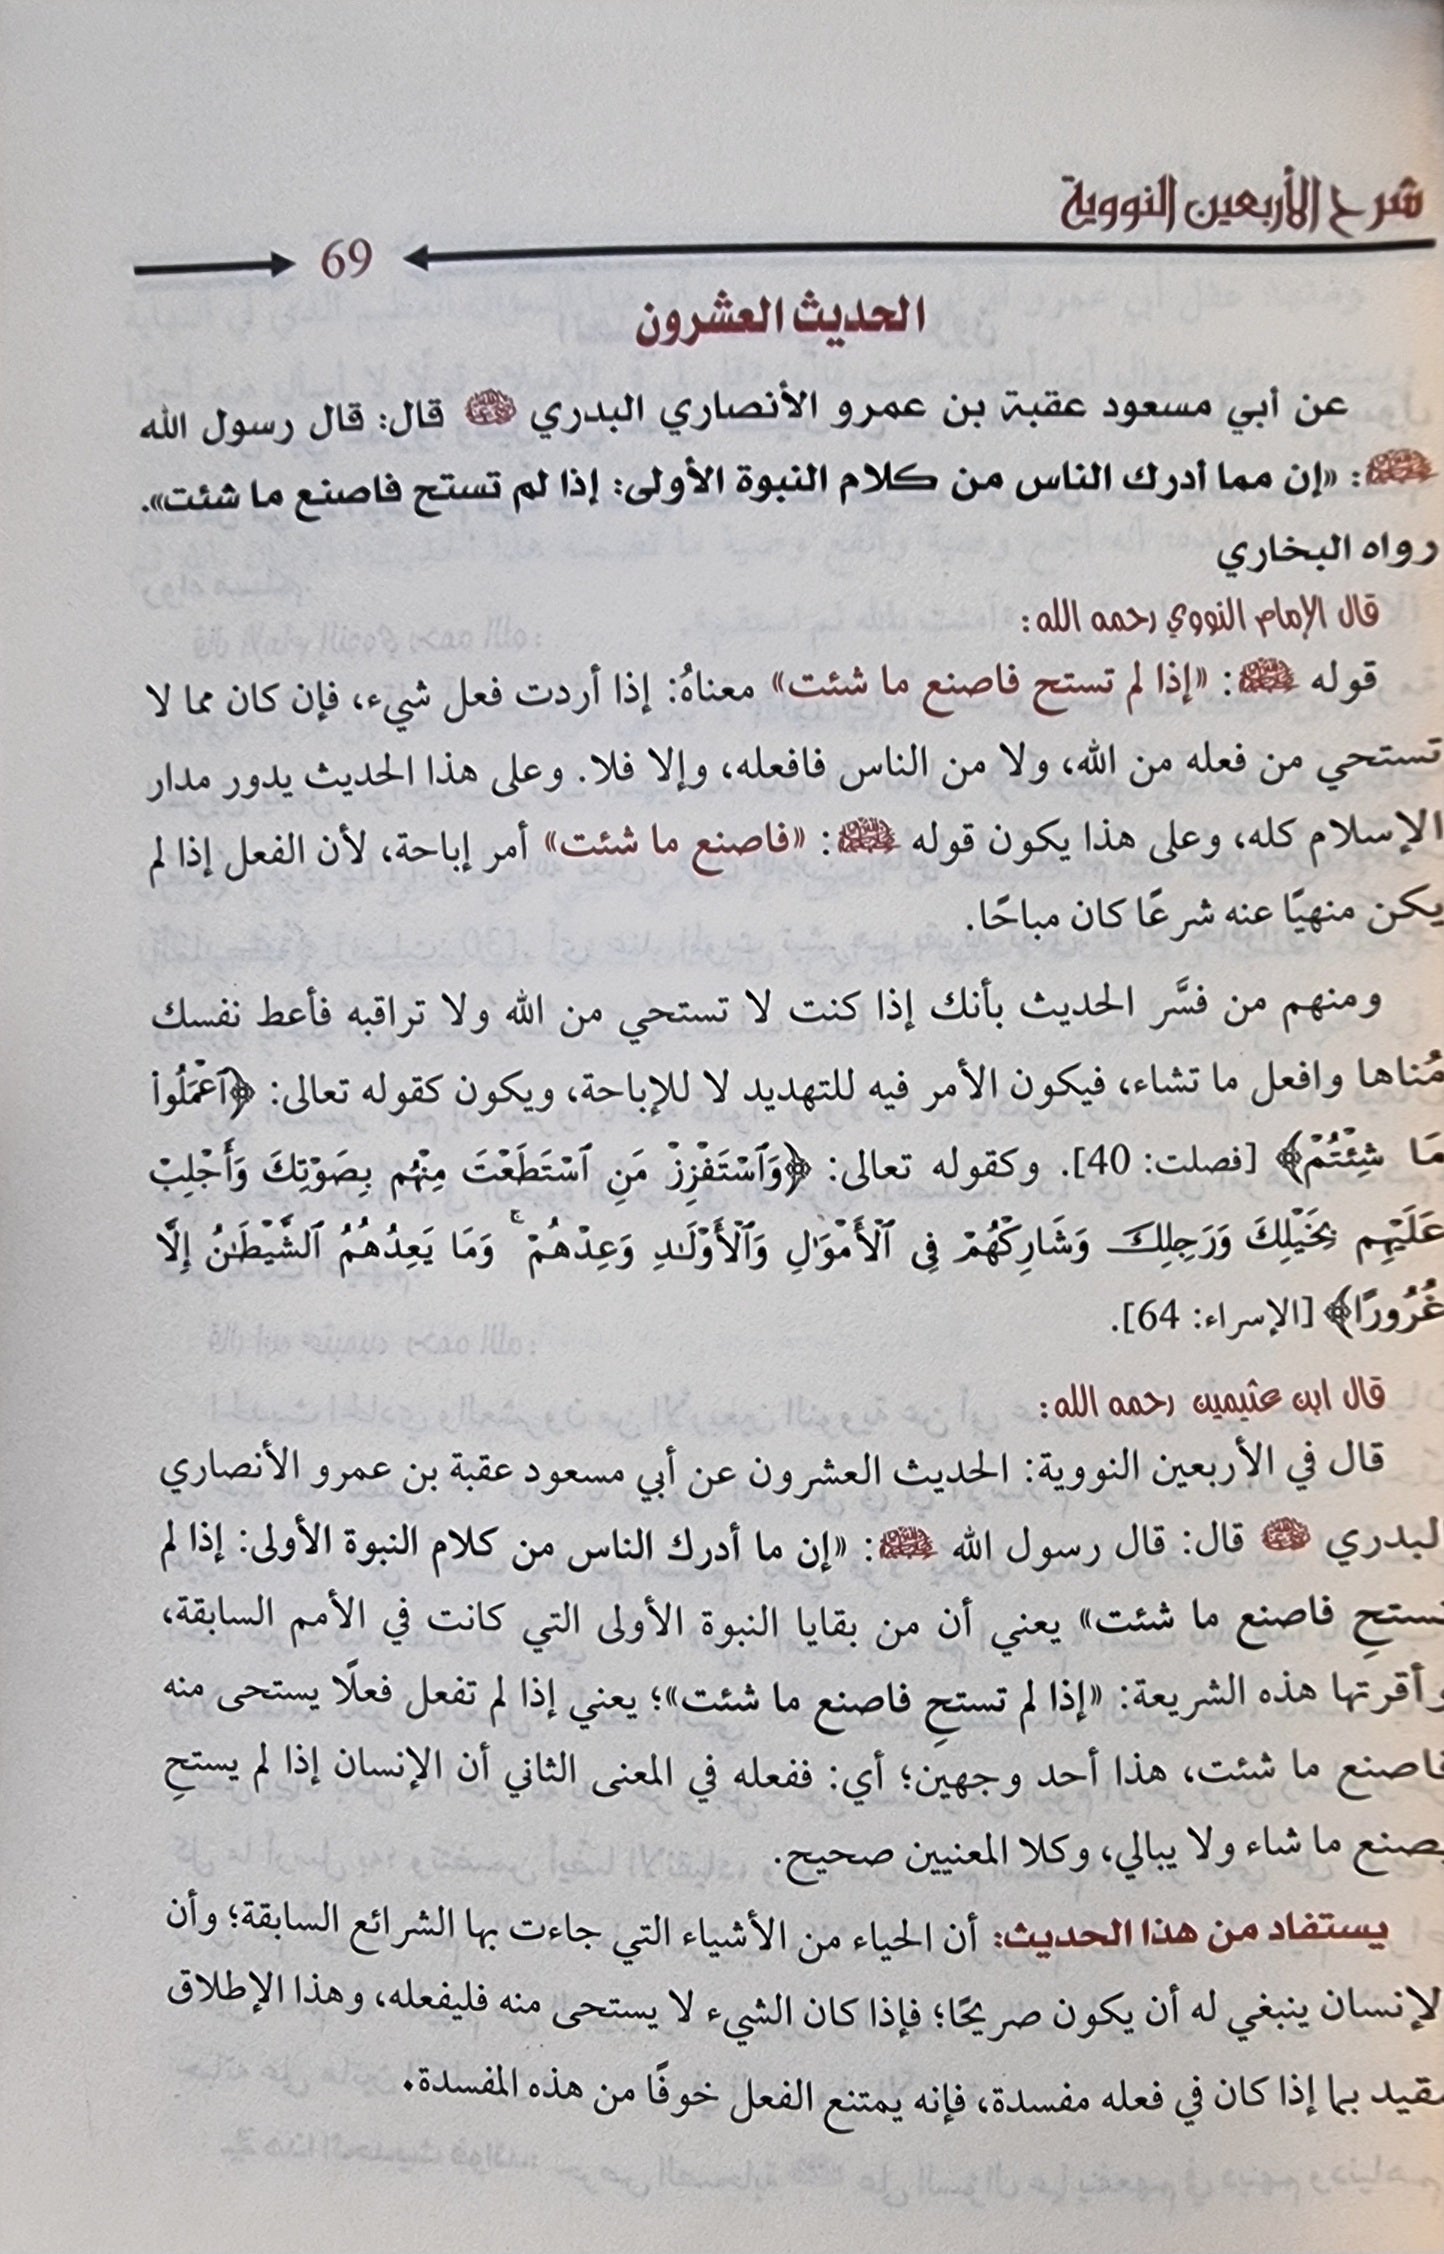 شرح الأربعين النووية
69
الحديث العشرون
عن أبي مسعود عقبة بن عمرو الأنصاري البدري رضي الله عنه قال: قال رسول الله
ﷺ: «إن مما أدرك الناس من كلام النبوة الأولى: إذا لم تستح فاصنع ما شئت».
رواه البخاري
قال الإمام النووي رحمه الله:
قوله ﷺ: «إذا لم تستح فاصنع ما شئت» معناهُ: إذا أردت فعل شيء، فإن كان مما لا
تستحي من فعله من الله، ولا من الناس فافعله، وإلا فلا. وعلى هذا الحديث يدور مدار
الإسلام كله، وعلى هذا يكون قوله ﷺ: «فاصنع ما شئت» أمر إباحة، لأن الفعل إذا لم
يكن منهيًا عنه شرعًا كان مباحًا.
ومنهم من فسَّر الحديث بأنك إذا كنت لا تستحي من الله ولا تراقبه فأعط نفسك
مُناها وافعل ما تشاء، فيكون الأمر فيه للتهديد لا للإباحة، ويكون كقوله تعالى: ﴿ٱعْمَلُوا۟
مَا شِئْتُمْ﴾ [فصلت: 40]. وكقوله تعالى: ﴿وَٱسْتَفْزِزْ مَنِ ٱسْتَطَعْتَ مِنْهُم بِصَوْتِكَ وَأَجْلِبْ
عَلَيْهِم بِخَيْلِكَ وَرَجِلِكَ وَشَارِكْهُمْ فِى ٱلْأَمْوَٰلِ وَٱلْأَوْلَـٰدِ وَعِدْهُمْ ۚ وَمَا يَعِدُهُمُ ٱلشَّيْطَـٰنُ إِلَّا
غُرُورًا﴾ [الإسراء: 64].
قال ابن عثيمين رحمه الله:
قال في الأربعين النووية: الحديث العشرون عن أبي مسعود عقبة بن عمرو الأنصاري
لبدري رضي الله عنه قال: قال رسول الله ﷺ: «إن ما أدرك الناس من كلام النبوة الأولى: إذا لم
تستحِ فاصنع ما شئت» يعني أن من بقايا النبوة الأولى التي كانت في الأمم السابقة،
وأقرتها هذه الشريعة: «إذا لم تستحِ فاصنع ما شئت»؛ يعني إذا لم تفعل فعلًا يستحى منه
فاصنع ما شئت، هذا أحد وجهين؛ أي: ففعله في المعنى الثاني أن الإنسان إذا لم يستحِ
يصنع ما شاء ولا يبالي، وكلا المعنيين صحيح.
يستفاد من هذا الحديث: أن الحياء من الأشياء التي جاءت بها الشرائع السابقة؛ وأن
لإنسان ينبغي له أن يكون صريحًا؛ فإذا كان الشيء لا يستحى منه فليفعله، وهذا الإطلاق
مقيد بما إذا كان في فعله مفسدة، فإنه يمتنع الفعل خوفًا من هذه المفسدة.